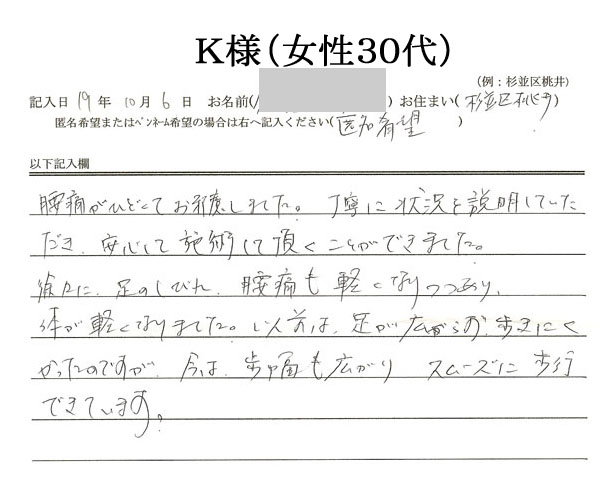 K様（女性30代）
（例：杉並区桃井）
記入日 19 年 10 月 6 日 お名前（ ）お住まい（杉並区桃井）
匿名希望またはペンネーム希望の場合は右へ記入ください（匿名希望 ）
以下記入欄
腰痛がひどくてお邪魔しました。丁寧に状況を説明していた
だき、安心して施術して頂くことができました。
徐々に、足のしびれ、腰痛も軽くなりつつあり、
体が軽くなりました。以前は、足が広がらず歩きにく
かったのですが、今は、歩幅も広がり スムーズに歩行
できています。